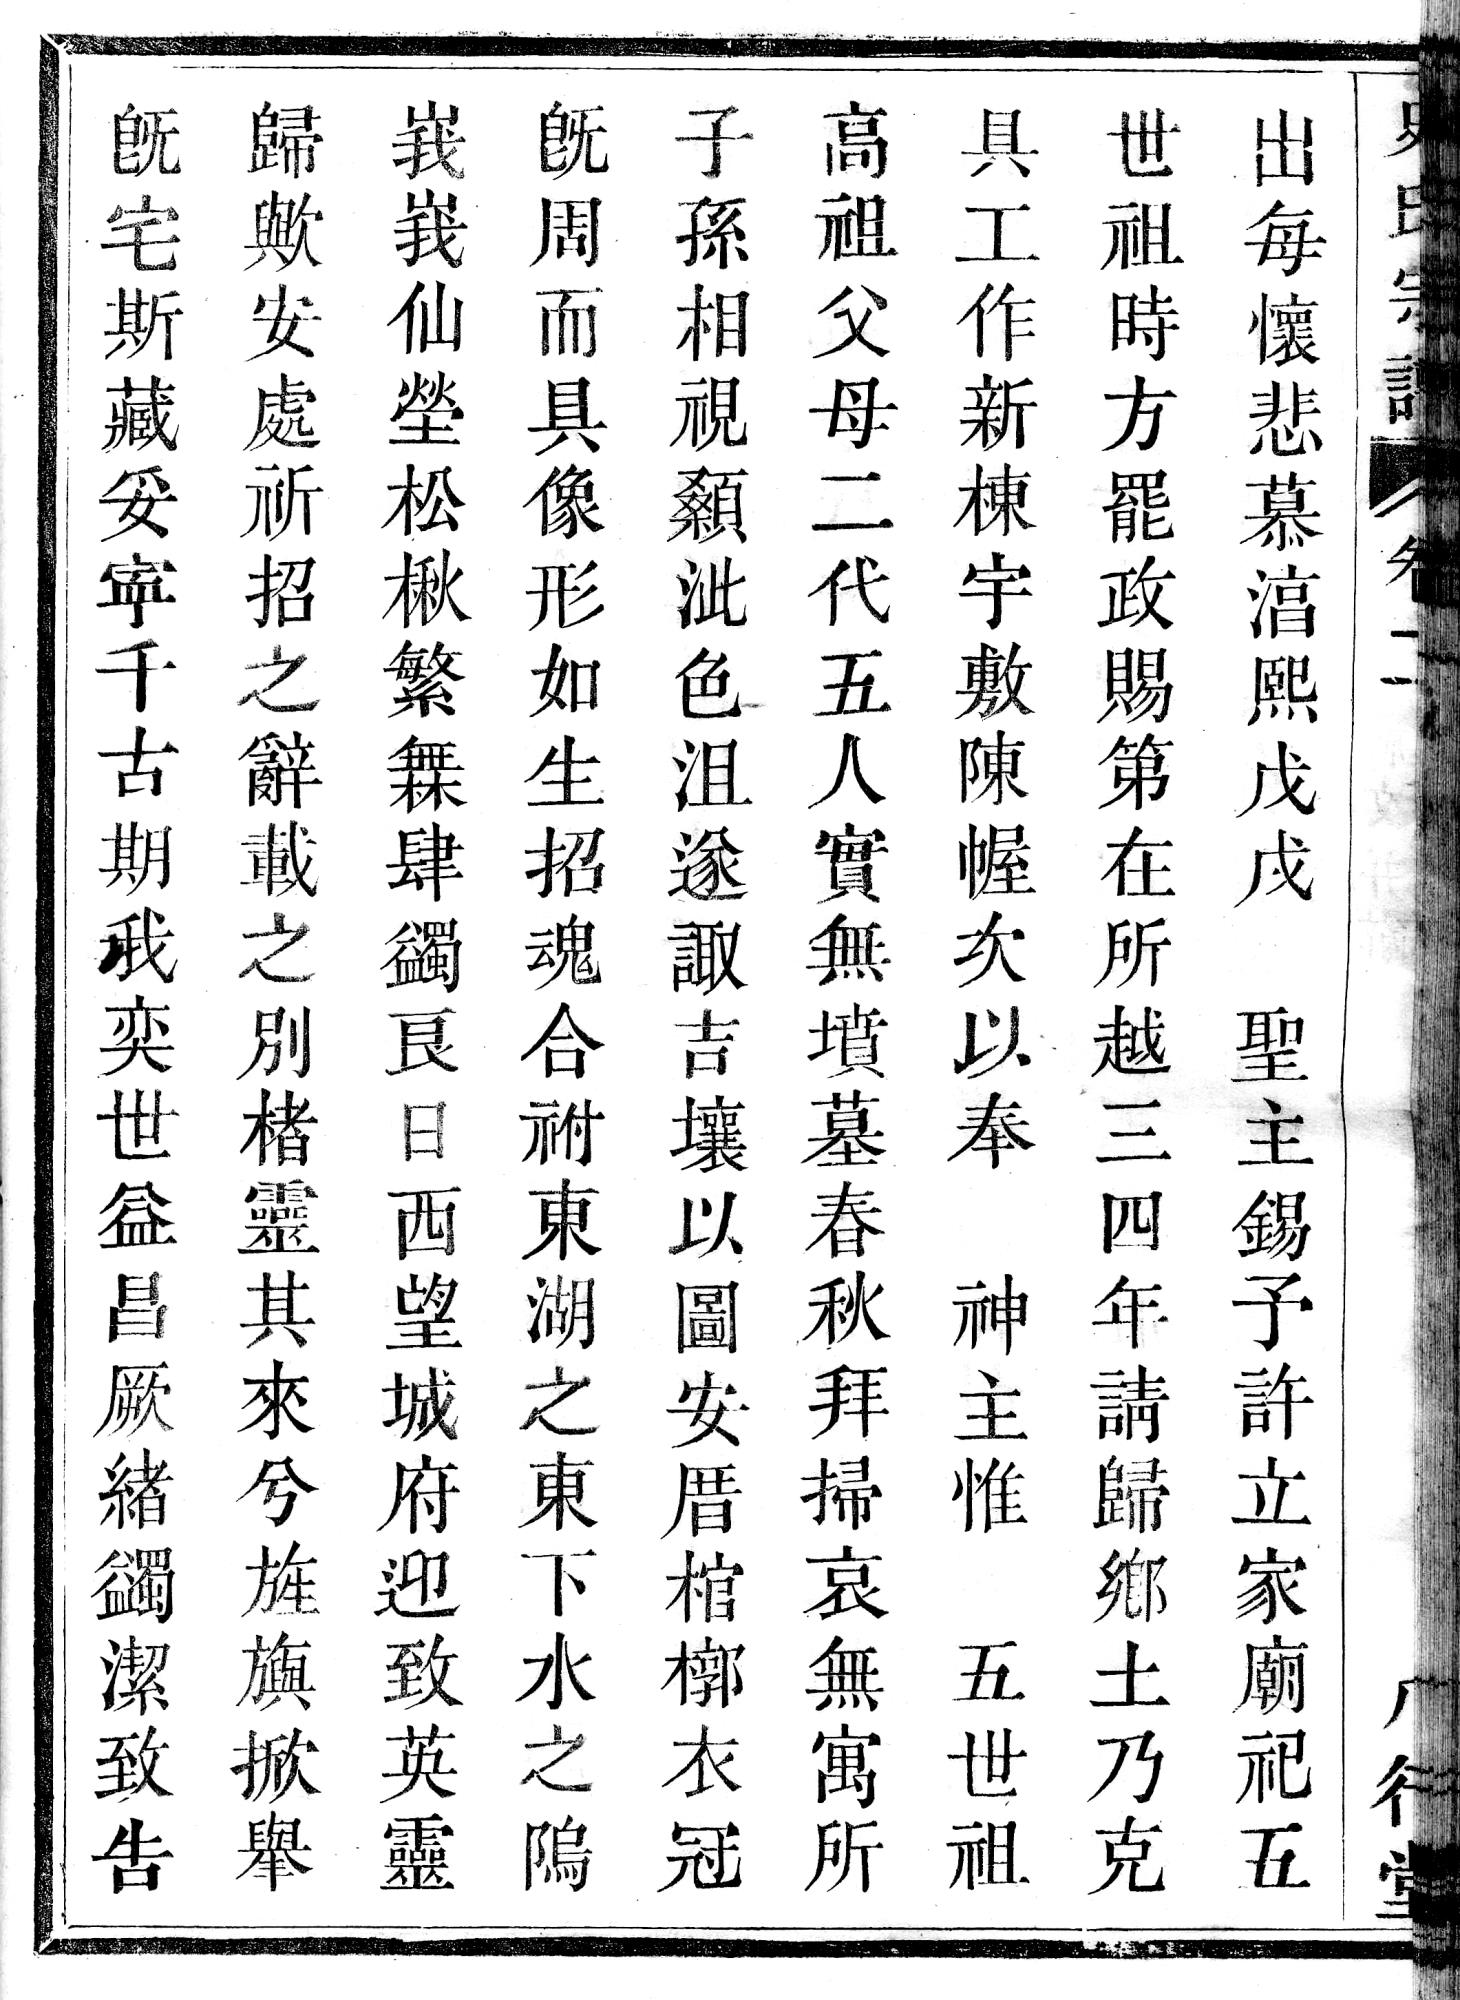 史氏宗譜 卷二 八行堂
出每懷悲慕湻熙戊戌 聖主錫予許立家廟祀五
世祖時方罷政賜第在所越三四年請歸鄉土乃克
具工作新棟宇敷陳幄次以奉 神主惟 五世祖
高祖父母二代五人實無墳墓春秋拜掃哀無寓所
子孫相視顙泚色沮遂諏吉壤以圖安厝棺槨衣冠
旣周而具像形如生招魂合祔東湖之東下水之隖
峩峩仙塋松楸繁橆肆蠲良日西望城府迎致英靈
歸歟安處祈招之辭載之別楮靈其來兮旌旟掀舉
旣宅斯藏妥寜千古期我奕世益昌厥緒蠲潔致告